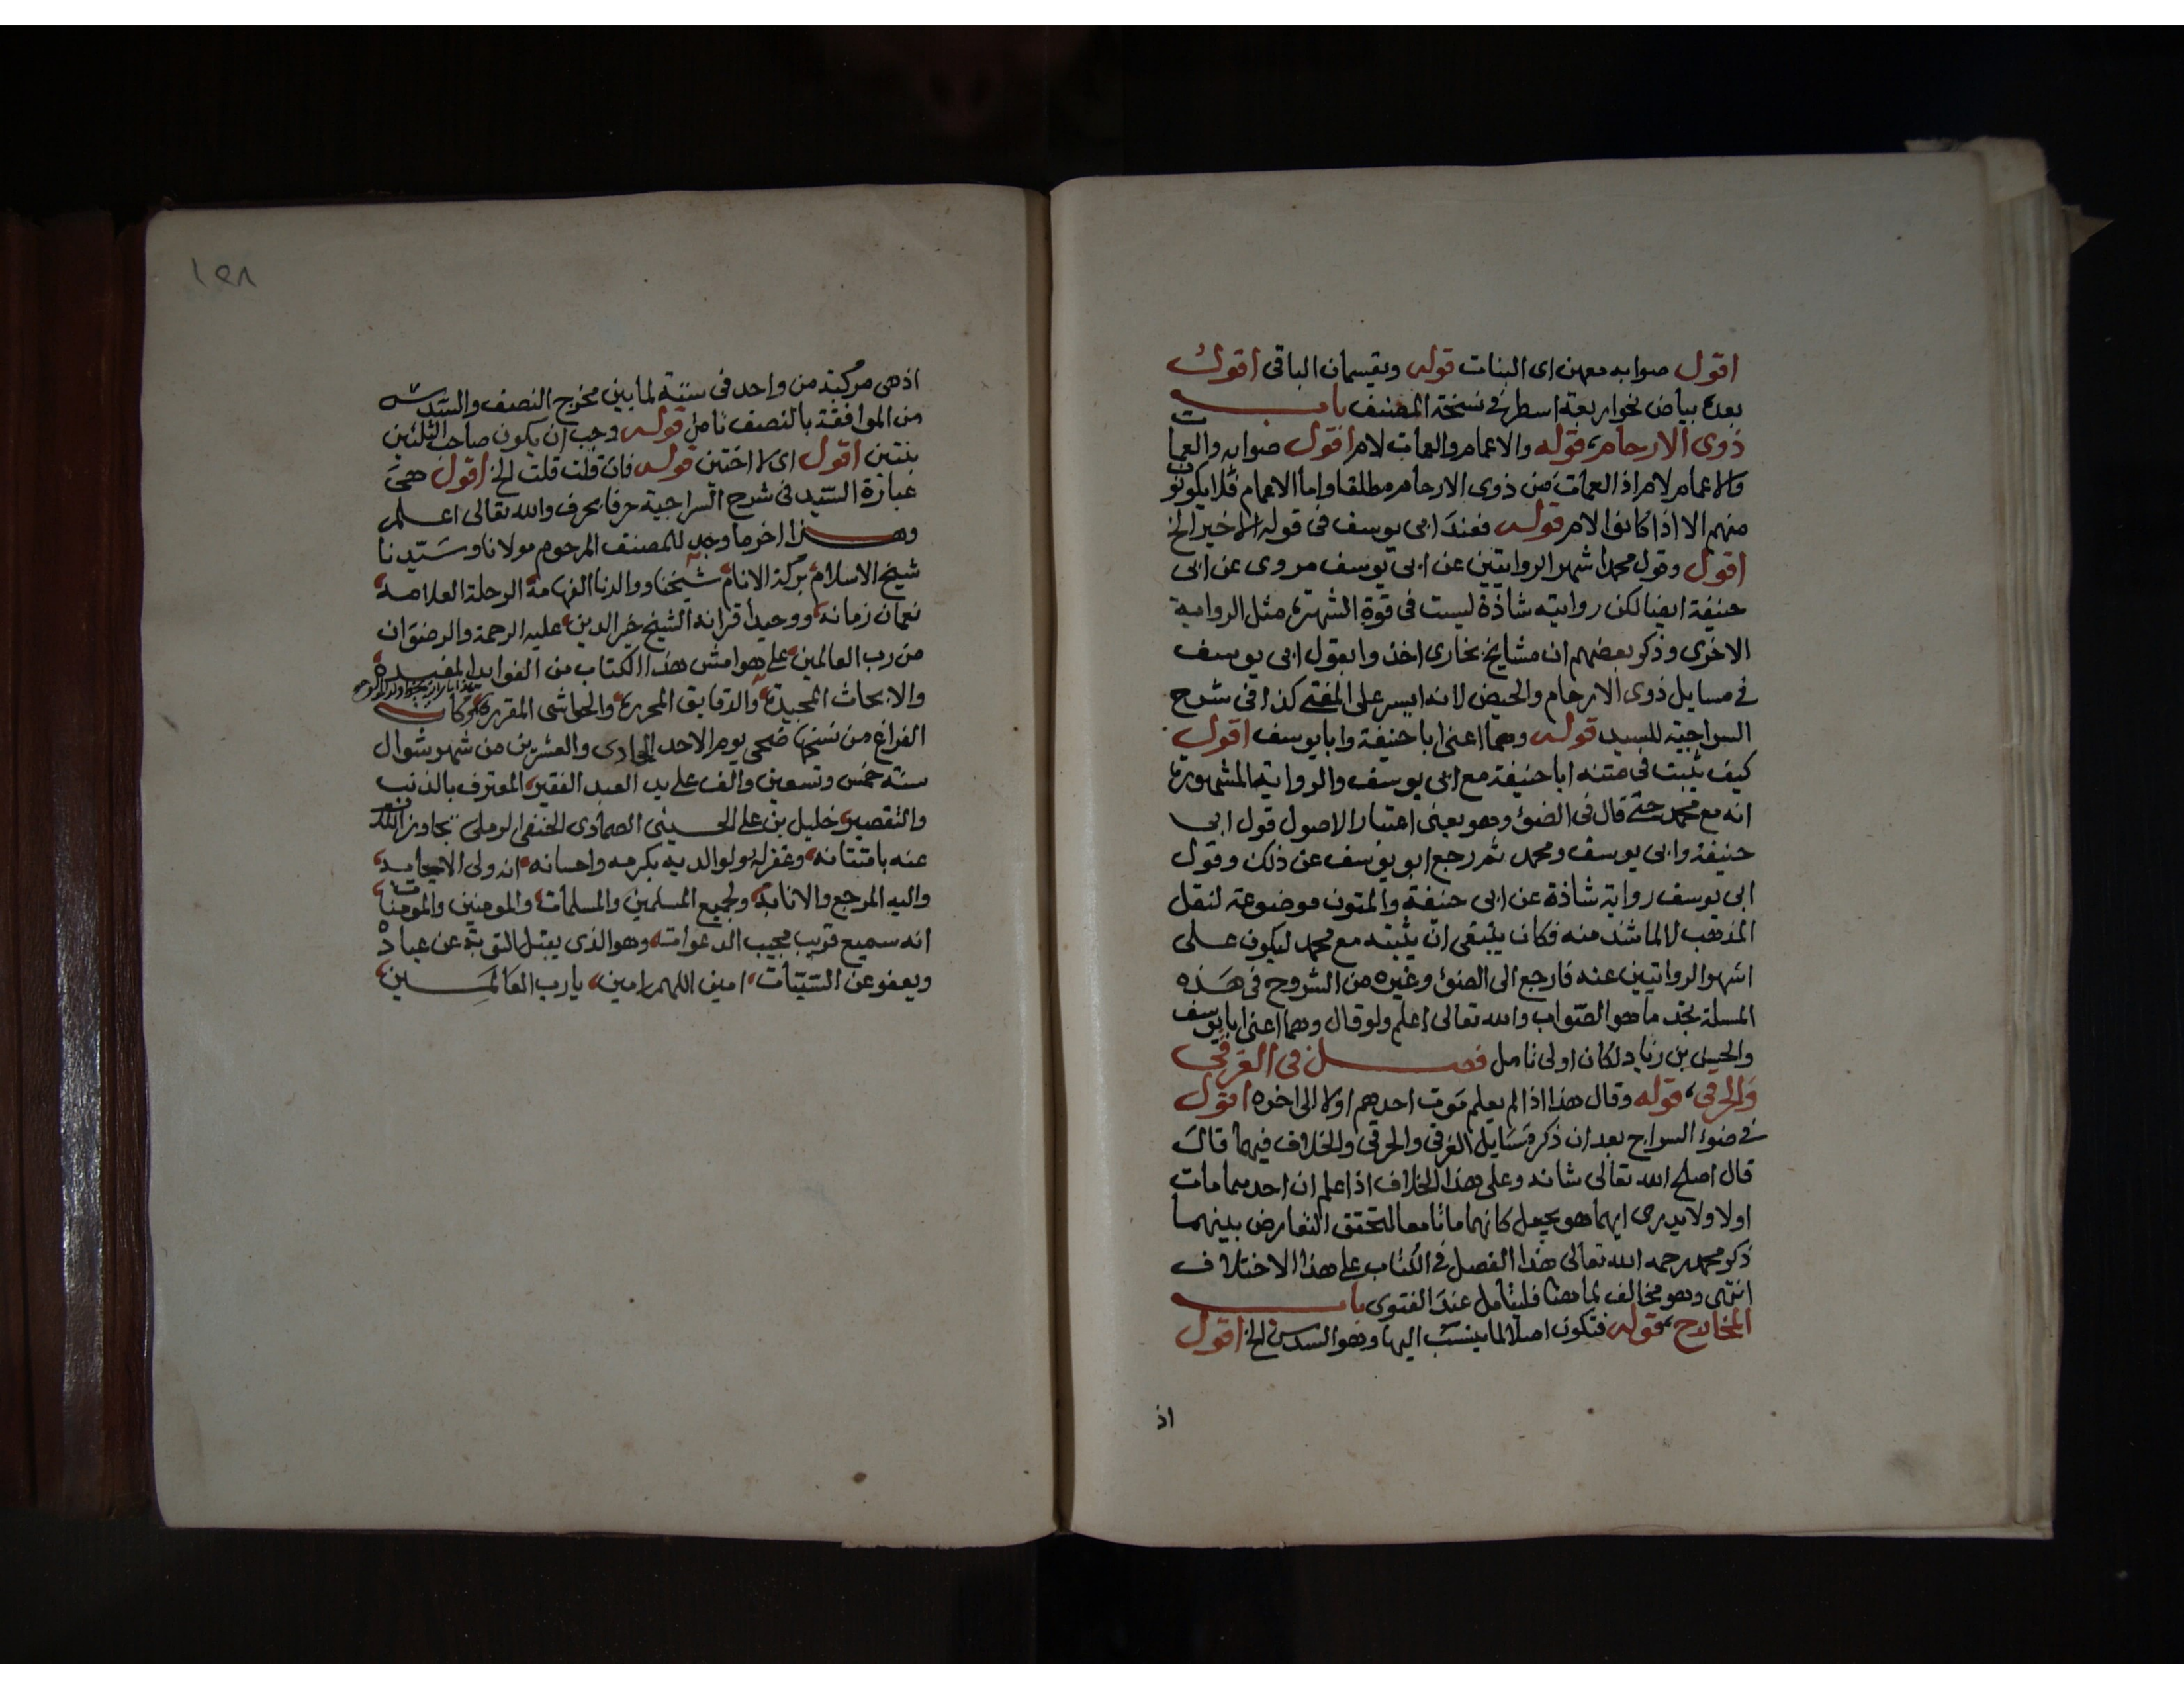 اقول صوابه معهن اى البنات قوله ويقسمان الباقى اقول
بعده بياض نحو اربعة اسطر فى نسخة المصنف باب
ذوى الارحام قوله والاعمام والعمات لام اقول صوابه والعمات
والاعمام لام اذ العمات من ذوى الارحام مطلقا واما الاعمام فلا يكونون
منهم الا اذا كانوا لام قوله فعند ابى يوسف فى قوله الاخير الخ
اقول وقول محمد اشهر الروايتين عن ابى يوسف مروى عن ابى
حنيفة ايضا لكن روايته شاذة ليست فى قوة الشهرة مثل الرواية
الاخرى وذكر بعضهم ان مشايخ بخارى اخذوا بقول ابى يوسف
فى مسايل ذوى الارحام والحيض لانه ايسر على المفتى كذا فى شرح
السراجية للسيد قوله وهما اعنى ابا حنيفة وابا يوسف اقول
كيف يثبت فى متنه ابا حنيفة مع ابى يوسف والرواية المشهورة
انه مع محمد حتى قال فى الضوء وهو يعنى اعتبار الاصول قول ابى
حنيفة وابى يوسف ومحمد ثم رجع ابو يوسف عن ذلك وقول
ابى يوسف رواية شاذة عن ابى حنيفة والمتون موضوعة لنقل
المذهب لا لما شذ منه فكان ينبغى ان يثبته مع محمد ليكون على
اشهر الروايتين عنه فارجع الى الضوء وغيره من الشروح فى هذه
المسلة تجد ما هو الصواب والله تعالى اعلم ولو قال وهما اعنى ابا يوسف
والحسن بن زياد لكان اولى تامل فصل فى الغرقى
والحرقى قوله وقال هذا اذا لم يعلم موت احدهم اولا الى اخره اقول
فى ضوء السراج بعد ان ذكر مسايل الغرقى والحرقى والخلاف فيها قال
قال اصلح الله تعالى شانه وعلى هذا الخلاف اذا علم ان احدهما مات
اولا ولا يدرى ايهما هو يجعل كانهما ماتا معا لتحقق التعارض بينهما
ذكر محمد رحمه الله تعالى هذا الفصل فى الكتاب على هذا الاختلاف
انتهى وهو مخالف لما هنا فليتامل عند الفتوى باب
المخارج قوله فتكون اصلا لما ينسب اليها وهو السدس الخ اقول
اذ
١٥٨
اذ هى مركبة من واحد فى ستة لما بين مخرج النصف والسدس
من الموافقة بالنصف تامل قوله وجب ان يكون صاحب الثلثين
بنتين اقول اى لا اختين قوله فان قلت قلت الخ اقول هى
عبارة السيد فى شرح السراجية حرفا بحرف والله تعالى اعلم
وهذا اخر ما وجد للمصنف المرحوم مولانا وسيدنا
شيخ الاسلام بركة الانام شيخنا ووالدنا الفهامة الرحلة العلامة
نعمان زمانه ووحيد اقرانه الشيخ خير الدين عليه الرحمة والرضوان
من رب العالمين على هوامش هذا الكتاب من الفوايد المفيدة
والابحاث المجيدة والدقايق المحررة والحواشى المقررة وكان
الفراغ من نسخها ضحى يوم الاحد الحادى والعشرين من شهر شوال
سنة خمس وتسعين والف على يد العبد الفقير المعترف بالذنب
والتقصير خليل بن على الحسينى الصمادى الحنفى الرملى تجاوز الله
عنه بامتنانه وغفر له ولوالديه بكرمه واحسانه انه ولى الاجابة
واليه المرجع والانابة ولجميع المسلمين والمسلمات والمومنين والمومنات
انه سميع قريب مجيب الدعوات وهو الذى يقبل التوبة عن عباده
ويعفو عن السيئات امين اللهم امين يارب العالمين